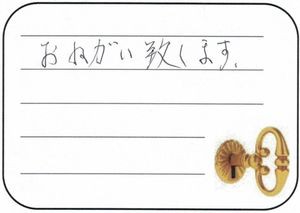 おねがい致します。